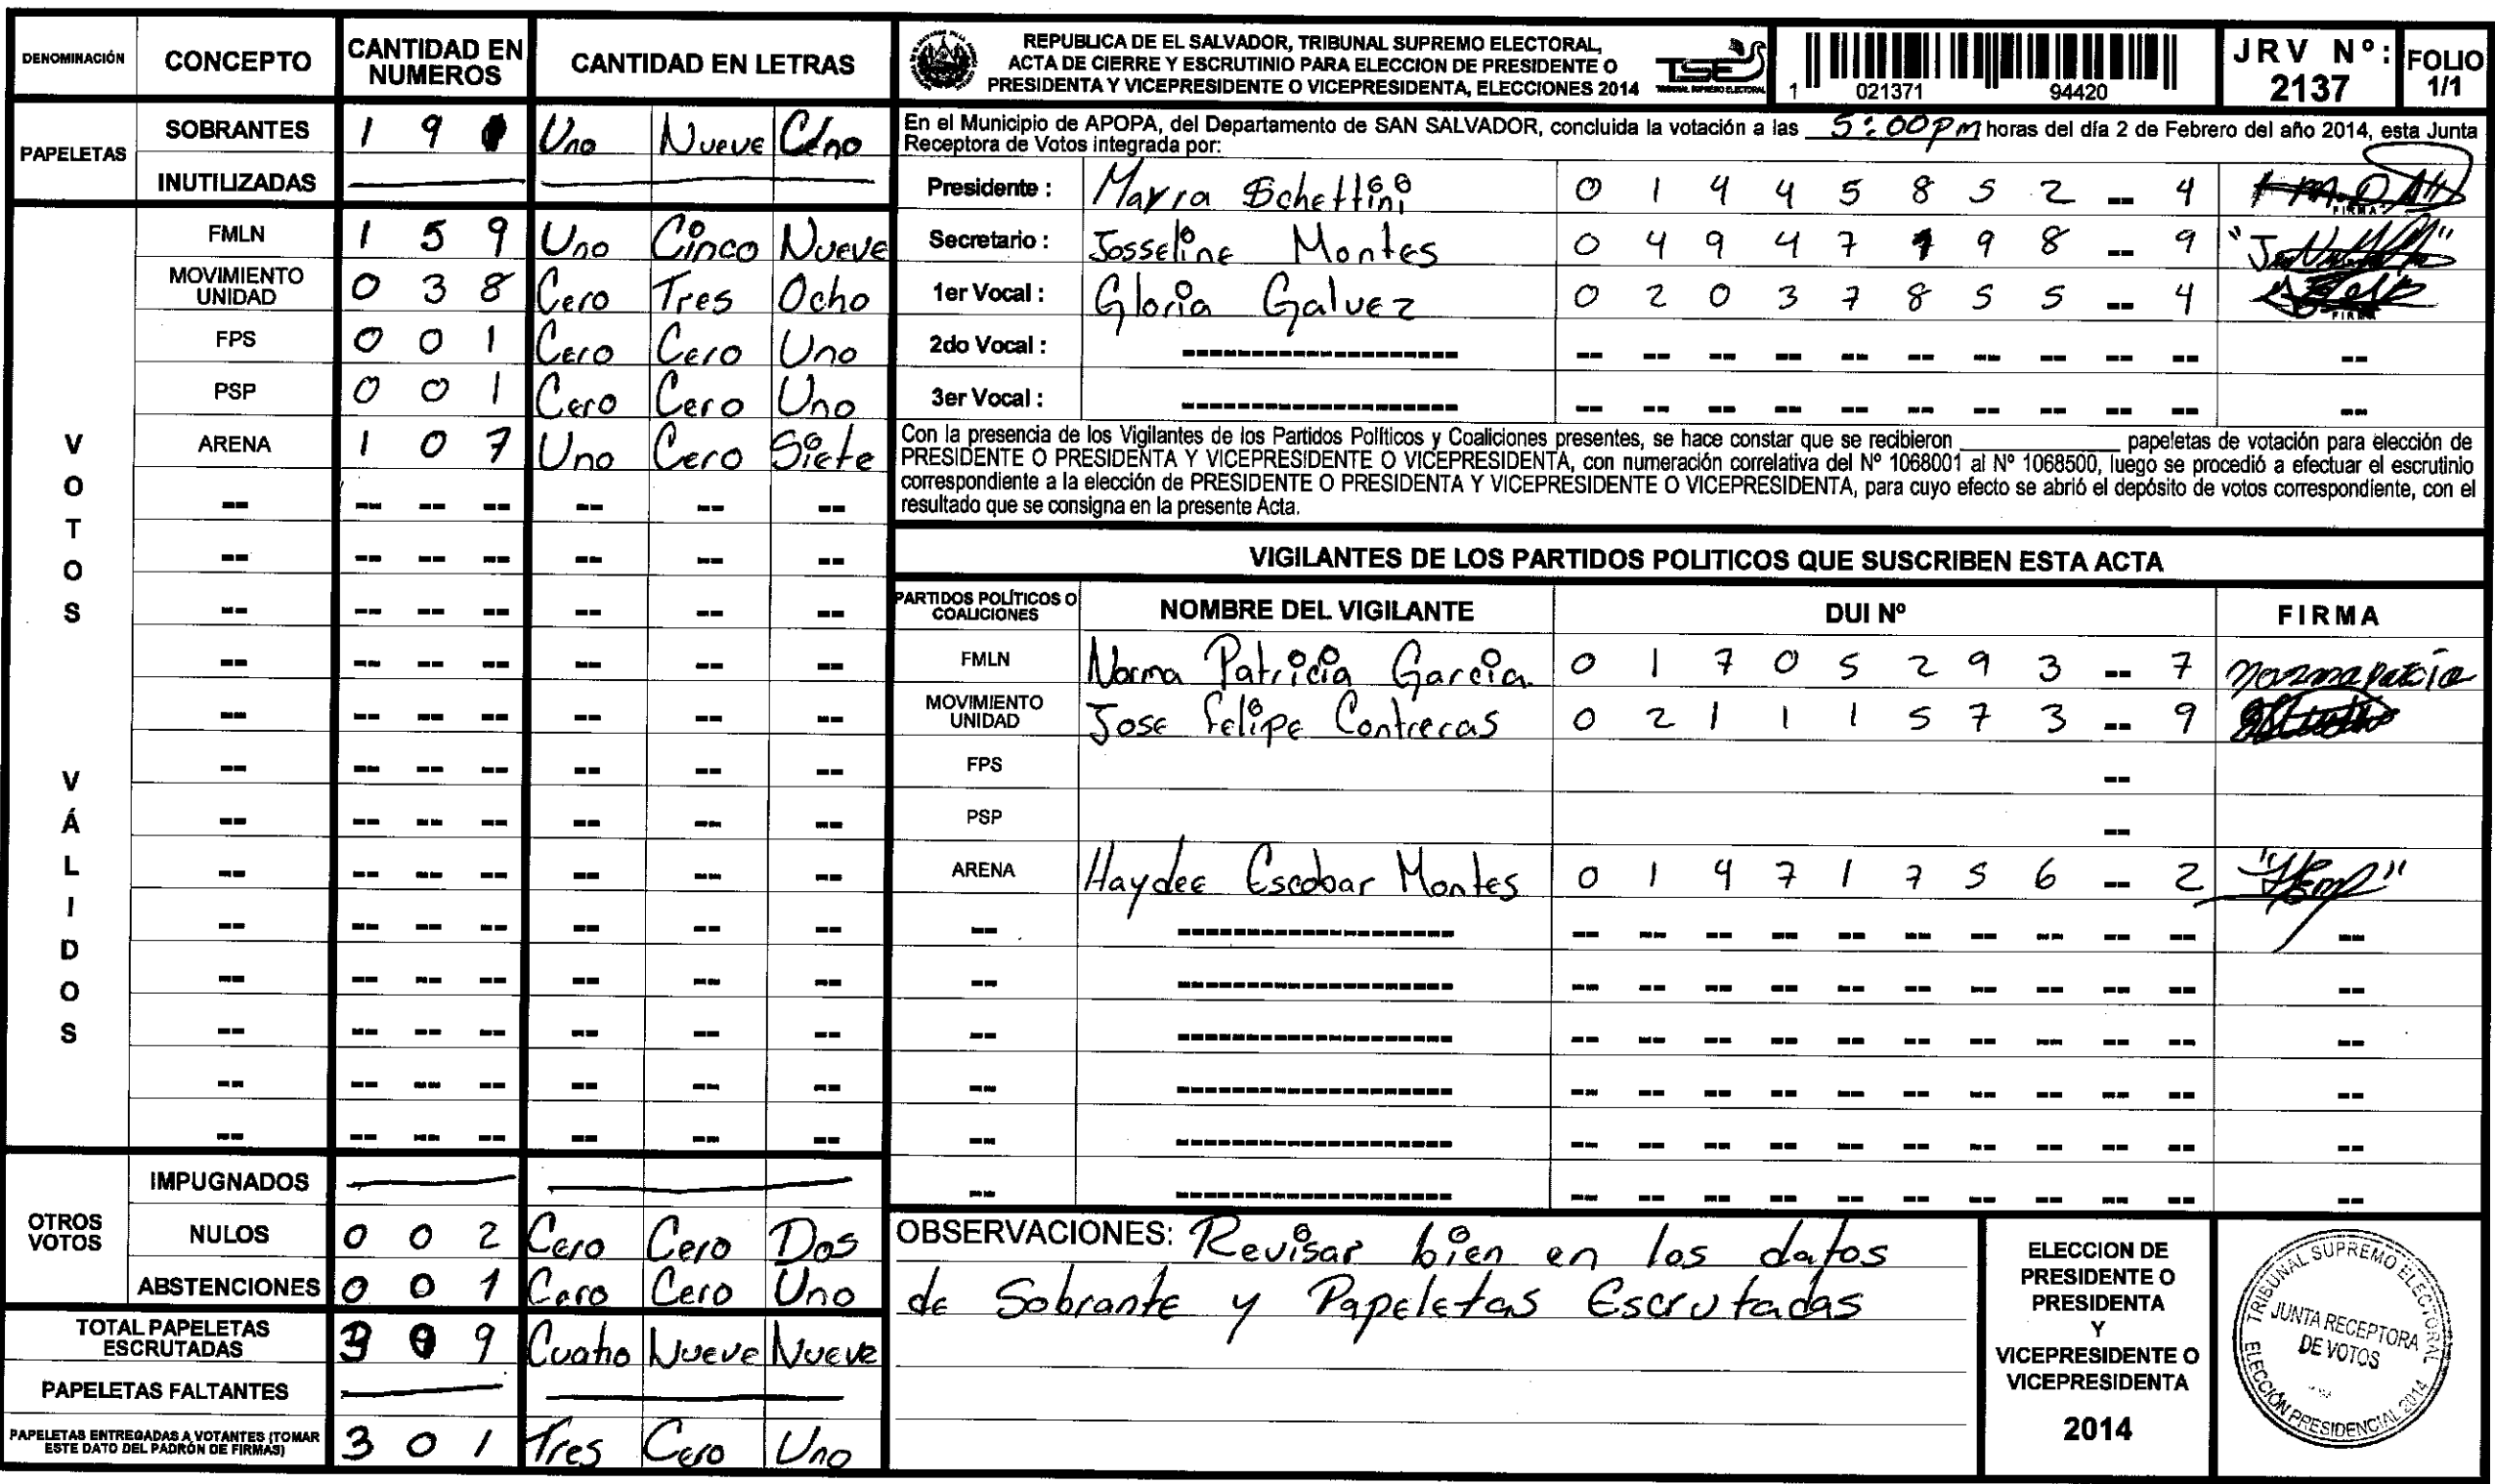 DENOMINACIÓN CONCEPTO CANTIDAD EN NUMEROS CANTIDAD EN LETRAS
PAPELETAS
SOBRANTES 1 9 Uno Nueve
INUTILIZADAS
VOTOS VÁLIDOS
FMLN 1 5 9 Uno Cinco Nueve
MOVIMIENTO UNIDAD 0 3 8 Cero Tres Ocho
FPS 0 0 1 Cero Cero Uno
PSP 0 0 1 Cero Cero Uno
ARENA 1 0 7 Uno Cero Siete
OTROS VOTOS
IMPUGNADOS
NULOS 0 0 2 Cero Cero Dos
ABSTENCIONES 0 0 1 Cero Cero Uno
TOTAL PAPELETAS ESCRUTADAS 9 Cuatro Nueve Nueve
PAPELETAS FALTANTES
PAPELETAS ENTREGADAS A VOTANTES (TOMAR ESTE DATO DEL PADRÓN DE FIRMAS) 3 0 1 Tres Cero Uno
REPUBLICA DE EL SALVADOR, TRIBUNAL SUPREMO ELECTORAL,
ACTA DE CIERRE Y ESCRUTINIO PARA ELECCION DE PRESIDENTE O
PRESIDENTA Y VICEPRESIDENTE O VICEPRESIDENTA, ELECCIONES 2014
TSE
TRIBUNAL SUPREMO ELECTORAL
1 021371 94420
JRV Nº: 2137
FOLIO 1/1
En el Municipio de APOPA, del Departamento de SAN SALVADOR, concluida la votación a las 5:00 PM horas del día 2 de Febrero del año 2014, esta Junta
Receptora de Votos integrada por:
Presidente : Mayra Schettini 0 1 4 4 5 8 5 2 -- 4 FIRMA
Secretario : Josseline Montes 0 4 9 4 7 9 8 -- 9
1er Vocal : Gloria Galvez 0 2 0 3 7 8 5 5 -- 4 FIRMA
2do Vocal :
3er Vocal :
Con la presencia de los Vigilantes de los Partidos Políticos y Coaliciones presentes, se hace constar que se recibieron ________ papeletas de votación para elección de
PRESIDENTE O PRESIDENTA Y VICEPRESIDENTE O VICEPRESIDENTA, con numeración correlativa del Nº 1068001 al Nº 1068500, luego se procedió a efectuar el escrutinio
correspondiente a la elección de PRESIDENTE O PRESIDENTA Y VICEPRESIDENTE O VICEPRESIDENTA, para cuyo efecto se abrió el depósito de votos correspondiente, con el
resultado que se consigna en la presente Acta.
VIGILANTES DE LOS PARTIDOS POLITICOS QUE SUSCRIBEN ESTA ACTA
PARTIDOS POLÍTICOS O COALICIONES NOMBRE DEL VIGILANTE DUI Nº FIRMA
FMLN Norma Patricia Garcia 0 1 7 0 5 2 9 3 -- 7
MOVIMIENTO UNIDAD Jose Felipe Contreras 0 2 1 1 1 5 7 3 -- 9
FPS --
PSP --
ARENA Haydee Escobar Montes 0 1 4 7 1 7 5 6 -- 2
OBSERVACIONES: Revisar bien en los datos
de Sobrante y Papeletas Escrutadas
ELECCION DE
PRESIDENTE O
PRESIDENTA
Y
VICEPRESIDENTE O
VICEPRESIDENTA
2014
TRIBUNAL SUPREMO ELECTORAL
JUNTA RECEPTORA
DE VOTOS
ELECCIÓN PRESIDENCIAL 2014